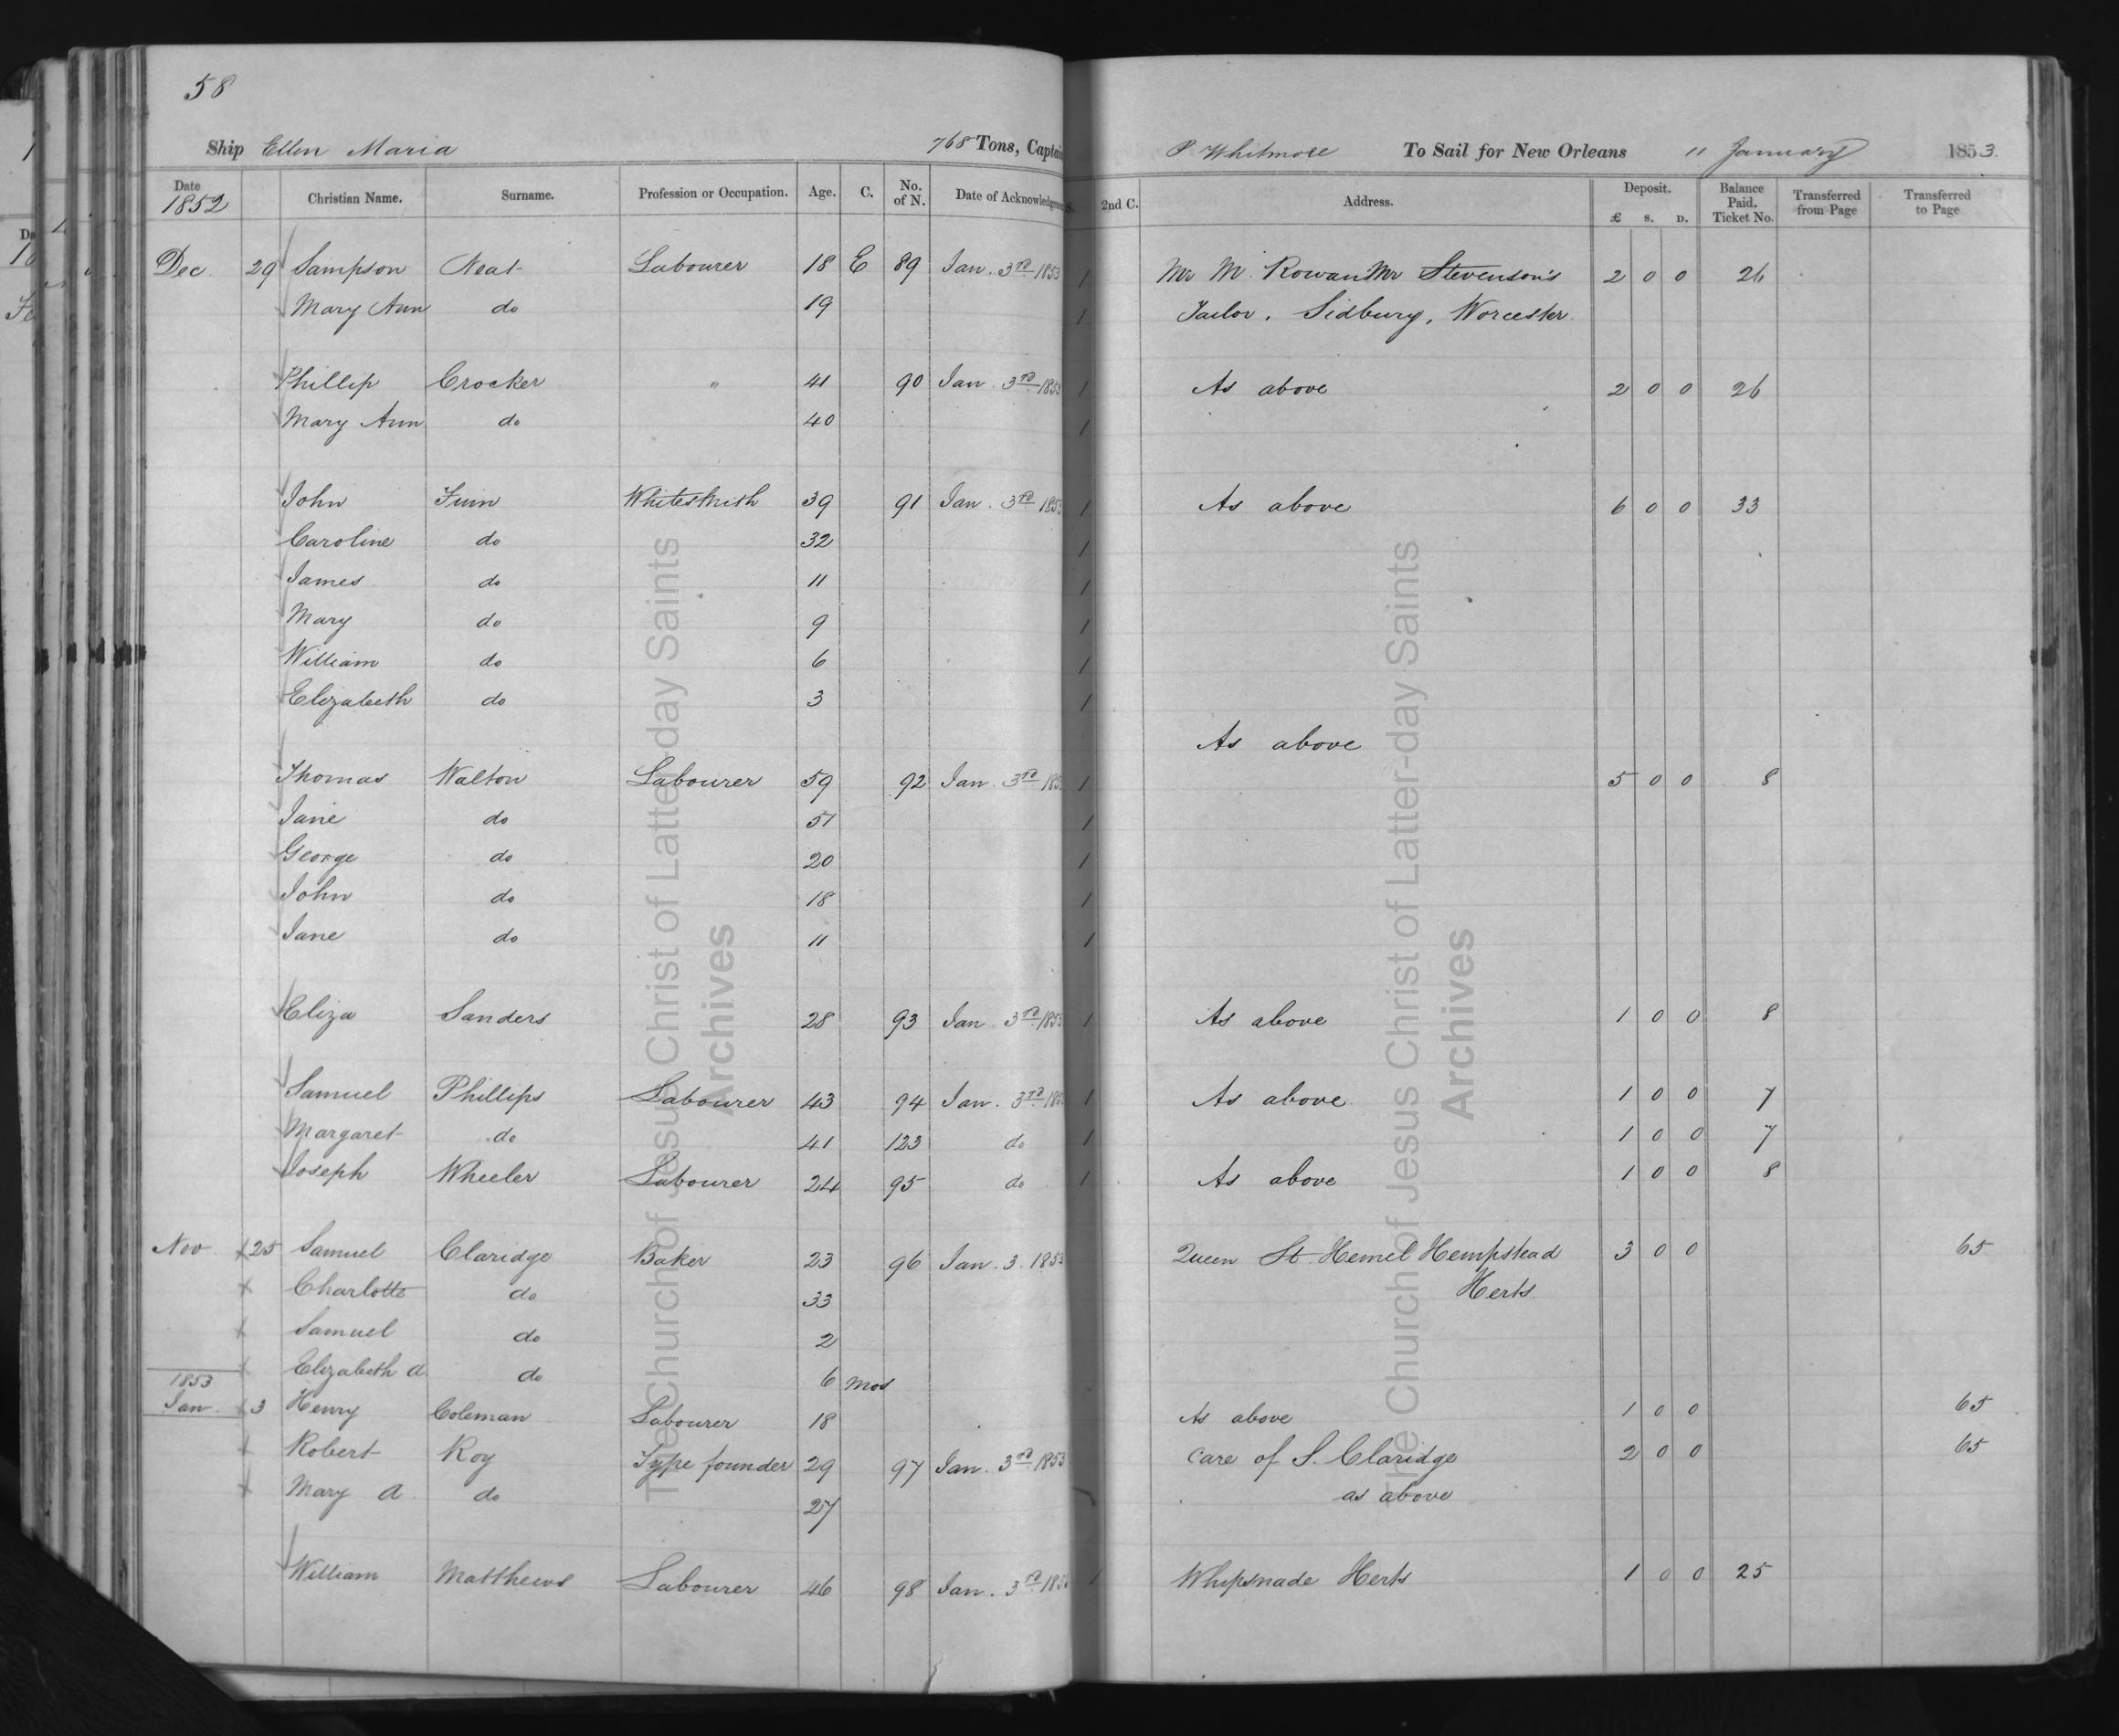 58
Ship Ellen Maria 768 Tons, Captain P Whitmore To Sail for New Orleans 11 January 1853.
Date 1852 Christian Name. Surname. Profession or Occupation. Age. C. No. of N. Date of Acknowledgement 2nd C. Address. Deposit. £ s. D. Balance Paid. Ticket No. Transferred from Page Transferred to Page
Dec. 29 Sampson Neat Labourer 18 E 89 Jan. 3rd 1853 1 Mr M. Rowan Mr Stevenson's 2 0 0 26
Mary Ann do 19 1 Tailor, Sidbury, Worcester
Phillip Crocker " 41 90 Jan. 3rd 1853 1 As above 2 0 0 26
Mary Ann do 40 1
John Whitesmith 39 91 Jan. 3rd 1853 1 As above 6 0 0 33
Caroline do 32 1
James do 11 1
Mary do 9 1
William do 6 1
Elizabeth do 3 1
As above
Thomas Walton Labourer 59 92 Jan. 3rd 185 1 5 0 0 8
Jane do 51 1
George do 20 1
John do 18 1
Jane do 11 1
Eliza Sanders 28 93 Jan. 3rd 1853 1 As above 1 0 0 8
Samuel Phillips Labourer 43 94 Jan. 3rd 185 1 As above 1 0 0 7
Margaret do 41 123 do 1 1 0 0 7
Joseph Wheeler Labourer 24 95 do 1 As above 1 0 0 8
Nov. x 25 Samuel Claridge Baker 23 96 Jan. 3. 1853 Queen St Hemel Hempstead 3 0 0 65
x Charlotte do 33 Herts
x Samuel do 2
x Elizabeth A. do 6 mos
1853
Jan. x 3 Henry Coleman Labourer 18 As above 1 0 0 65
x Robert Roy Type founder 29 97 Jan. 3rd 1853 care of S. Claridge 2 0 0 65
x Mary A. do 27 as above
William Matthews Labourer 46 98 Jan. 3rd 185 1 Whipsnade Herts 1 0 0 25
The Church of Jesus Christ of Latter-day Saints
Archives
The Church of Jesus Christ of Latter-day Saints
Archives